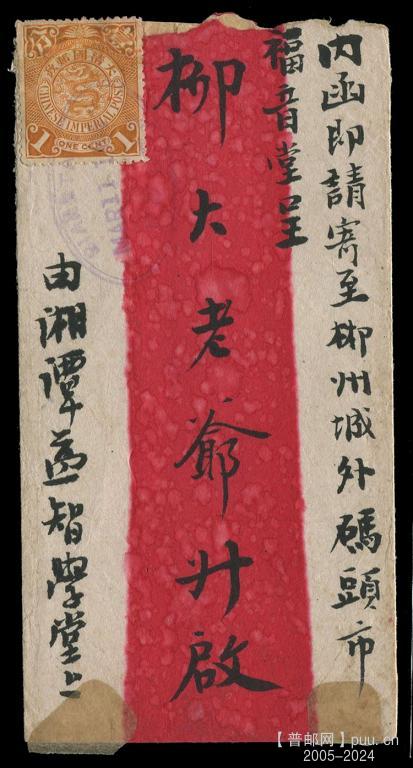 内函即請寄至郴州城外碼頭市
福音堂呈
柳大老爺升啟
由湘潭益智學堂上
大清國郵政
CHINESE IMPERIAL POST
1 ONE CENT 1
【普邮网】puu.cn
2005-2024